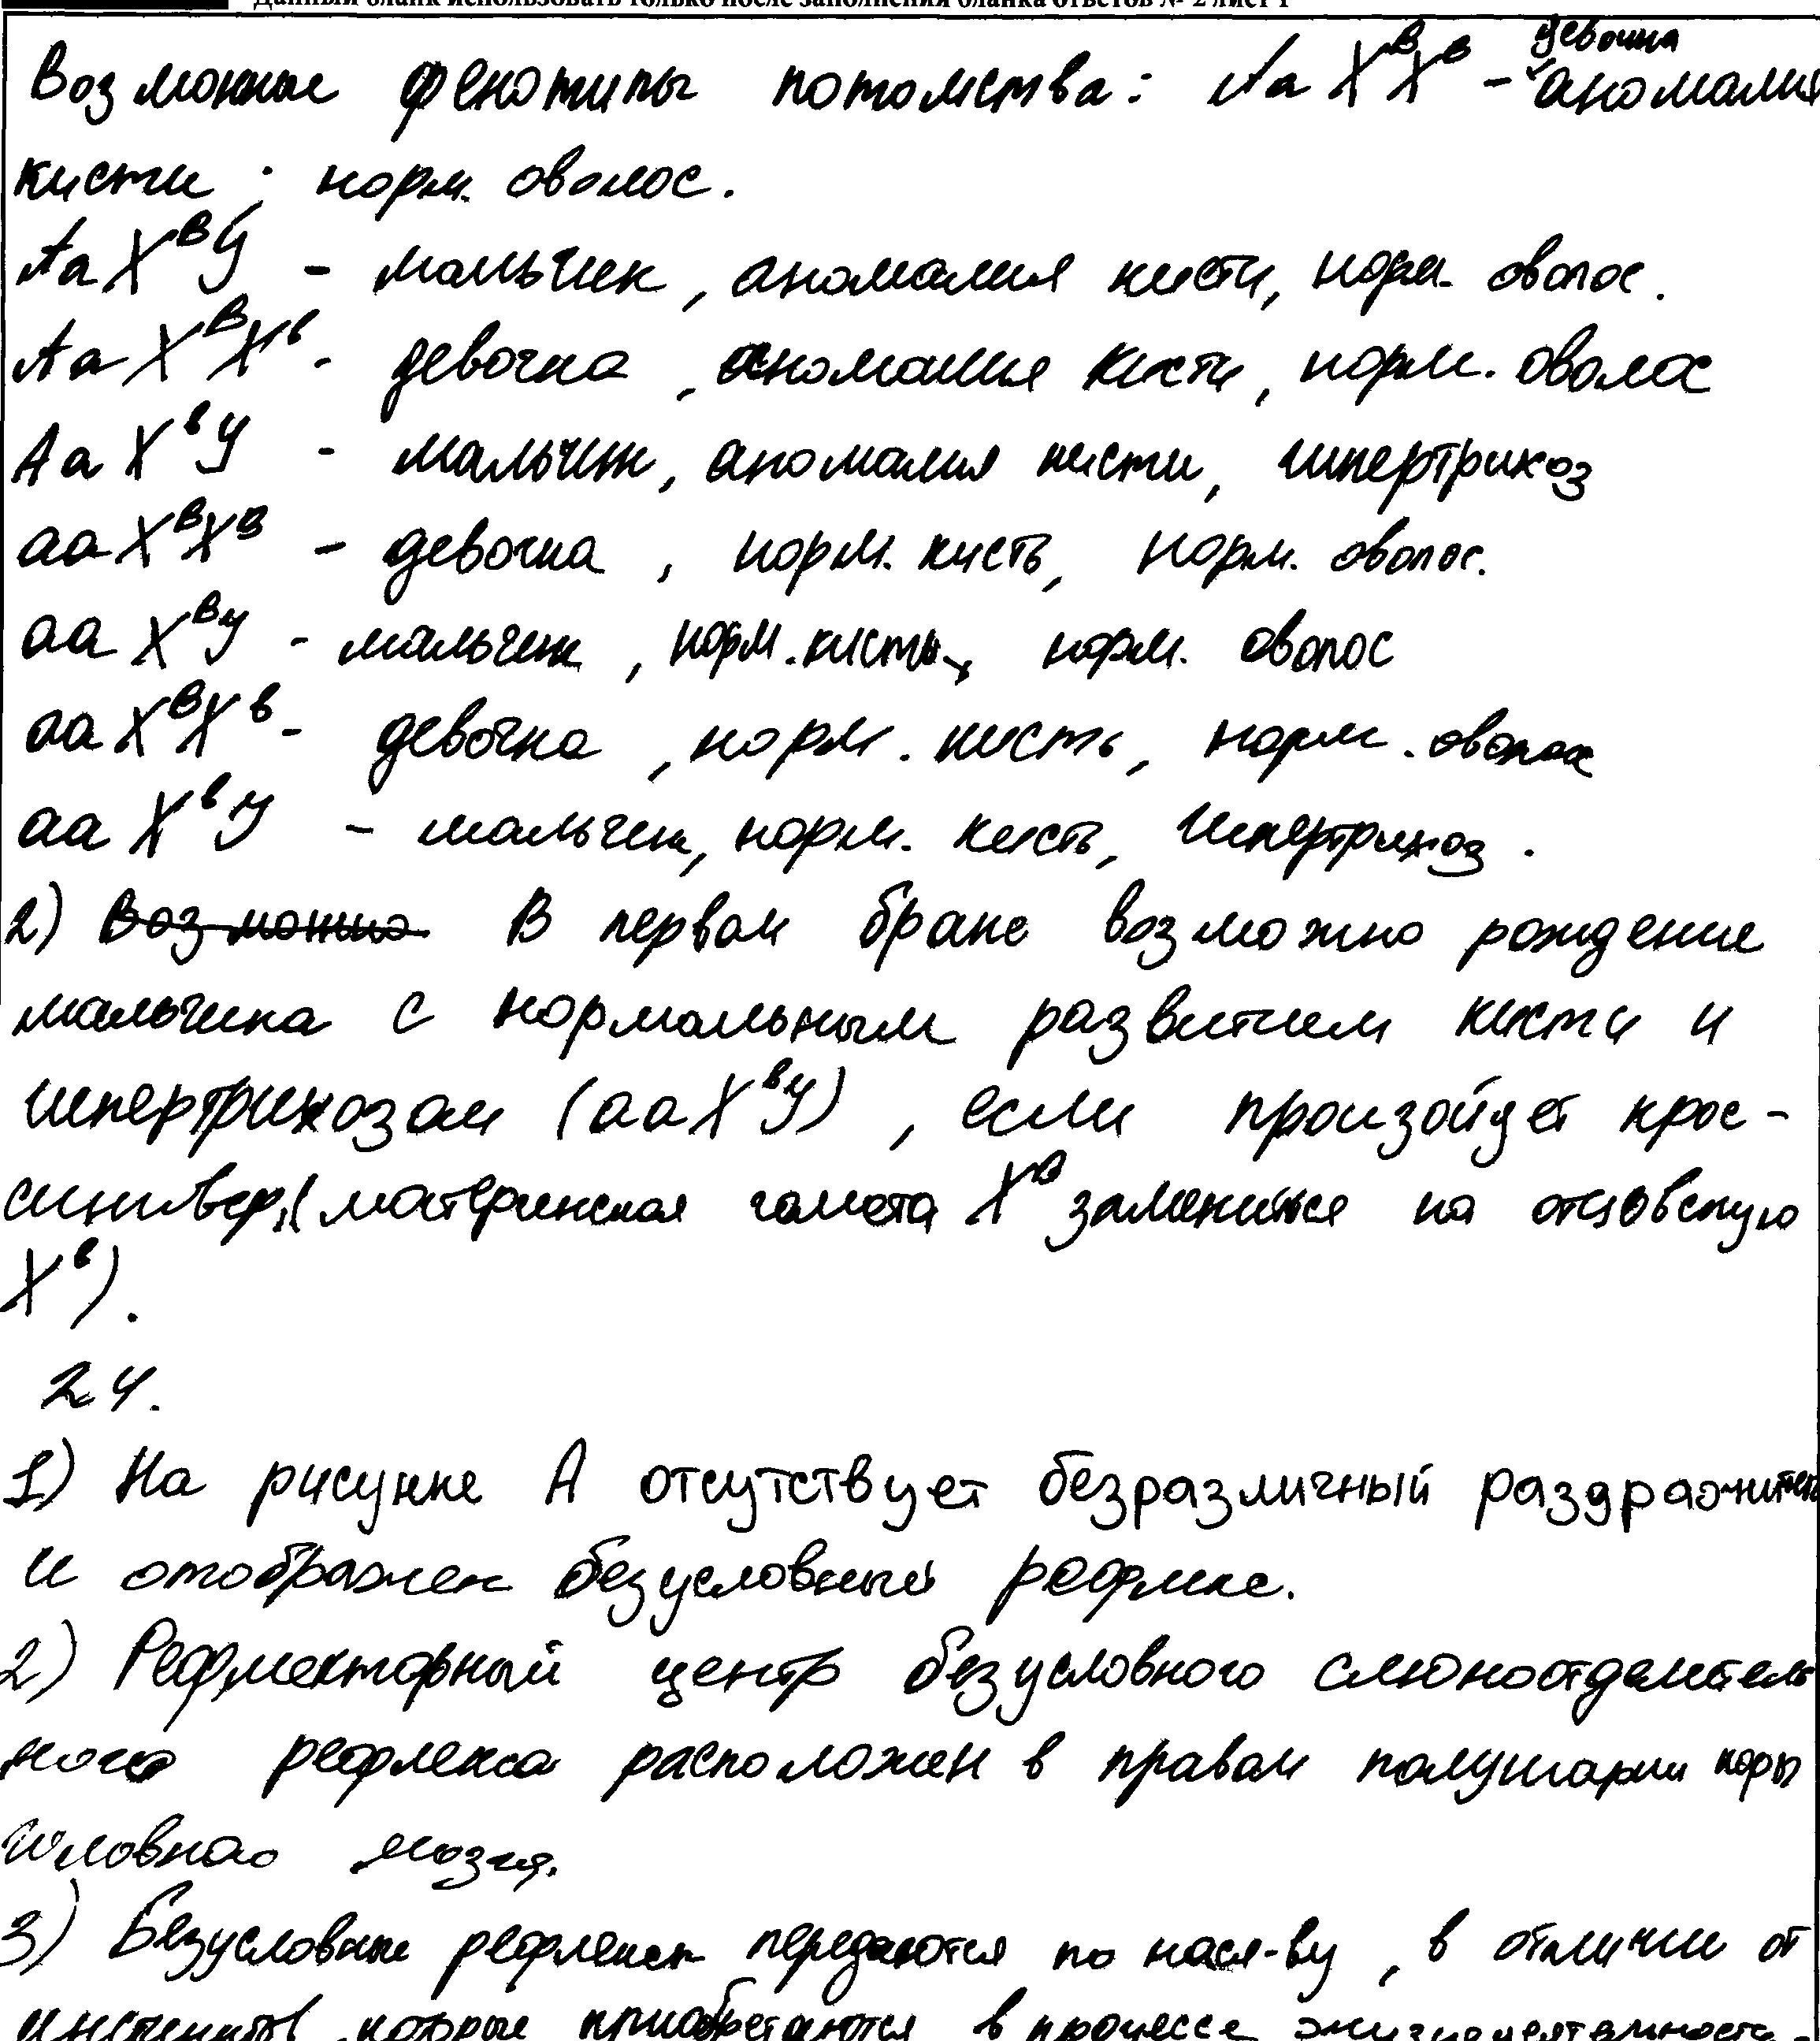 Данный бланк использовать только после заполнения бланка ответов № 2 лист 1
Возможные фенотипы потомства: Aa XᴮXᴮ - девочка аномалия
кисти; норм. оволос.
Aa XᴮY - мальчик, аномалия кисти, норм. оволос.
Aa XᴮXᵇ - девочка, аномалия кисти, норм. оволос
Aa XᵇY - мальчик, аномалия кисти, гипертрихоз
aa XᴮXᴮ - девочка, норм. кисть, норм. оволос.
aa XᴮY - мальчик, норм. кисть, норм. оволос
aa XᴮXᵇ - девочка, норм. кисть, норм. оволос
aa XᵇY - мальчик, норм. кисть, гипертрихоз.
2) Возможно В первом браке возможно рождение
мальчика с нормальным развитием кисти и
гипертрихозом (aa XᵇY), если произойдет крос-
синговер, (материнская гамета Xᴮ заменится на отцовскую
Xᵇ).
24.
1) На рисунке А отсутствует безразличный раздражитель
и отображен безусловный рефлекс.
2) Рефлекторный центр безусловного слюноотделитель
ного рефлекса расположен в правом полушарии коры
головного мозга.
3) Безусловные рефлексы передаются по насл-ву, в отличии от
которые приобретаются в процессе жизнедеятельности